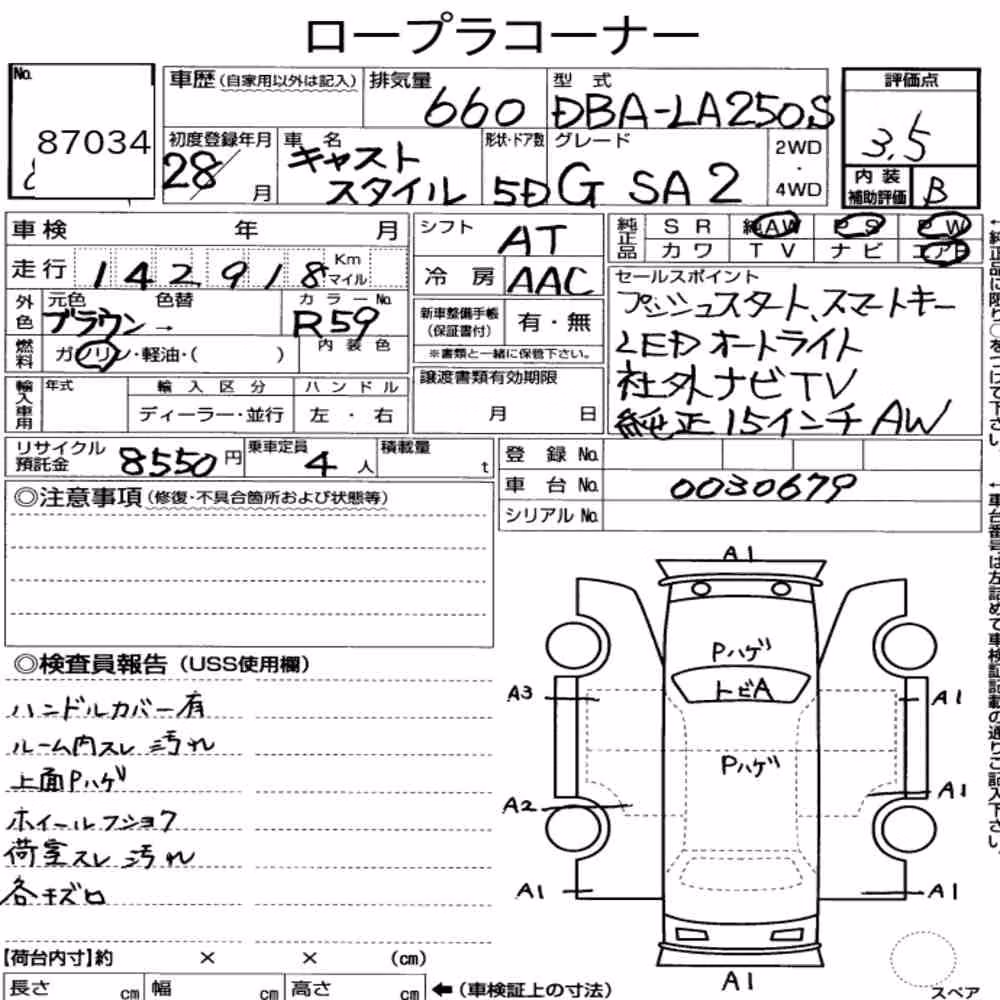 ロープラコーナー
No.
87034
車歴(自家用以外は記入)
排気量
660
型式
DBA-LA250S
評価点
3.5
初度登録年月
28/
月
車名
キャスト
スタイル
形状・ドア数
5D
グレード
G SA2
2WD
・
4WD
内装
補助評価
B
車検 年 月
走行 142918 Km マイル
シフト
AT
冷房
AAC
純正品
SR 純AW PS PW
カワ TV ナビ エアB
外色
元色 色替
ブラウン→
カラーNo.
R59
内装色
燃料
ガソリン・軽油・( )
新車整備手帳
(保証書付)
有・無
※書類と一緒に保管下さい。
セールスポイント
プッシュスタート、スマートキー
LEDオートライト
社外ナビTV
純正15インチAW
輸入車用
年式
輸入区分
ディーラー・並行
ハンドル
左・右
譲渡書類有効期限
月 日
リサイクル
預託金
8550円
乗車定員
4人
積載量
t
登録No.
車台No. 0030679
シリアルNo.
◎注意事項(修復・不具合箇所および状態等)
◎検査員報告(USS使用欄)
ハンドルカバー有
ルーム内スレ 汚れ
上面Pハゲ
ホイールフショク
荷室スレ 汚れ
各キズロ
A1
Pハゲ
トビA
A3
A1
Pハゲ
A2
A1
A1
A1
A1
スペア
【荷台内寸】約 × × (cm)
長さ cm 幅 cm 高さ cm ←(車検証上の寸法)
←純正品に限り○をつけて下さい。
←車台番号は左詰めで車検証記載の通りご記入下さい。